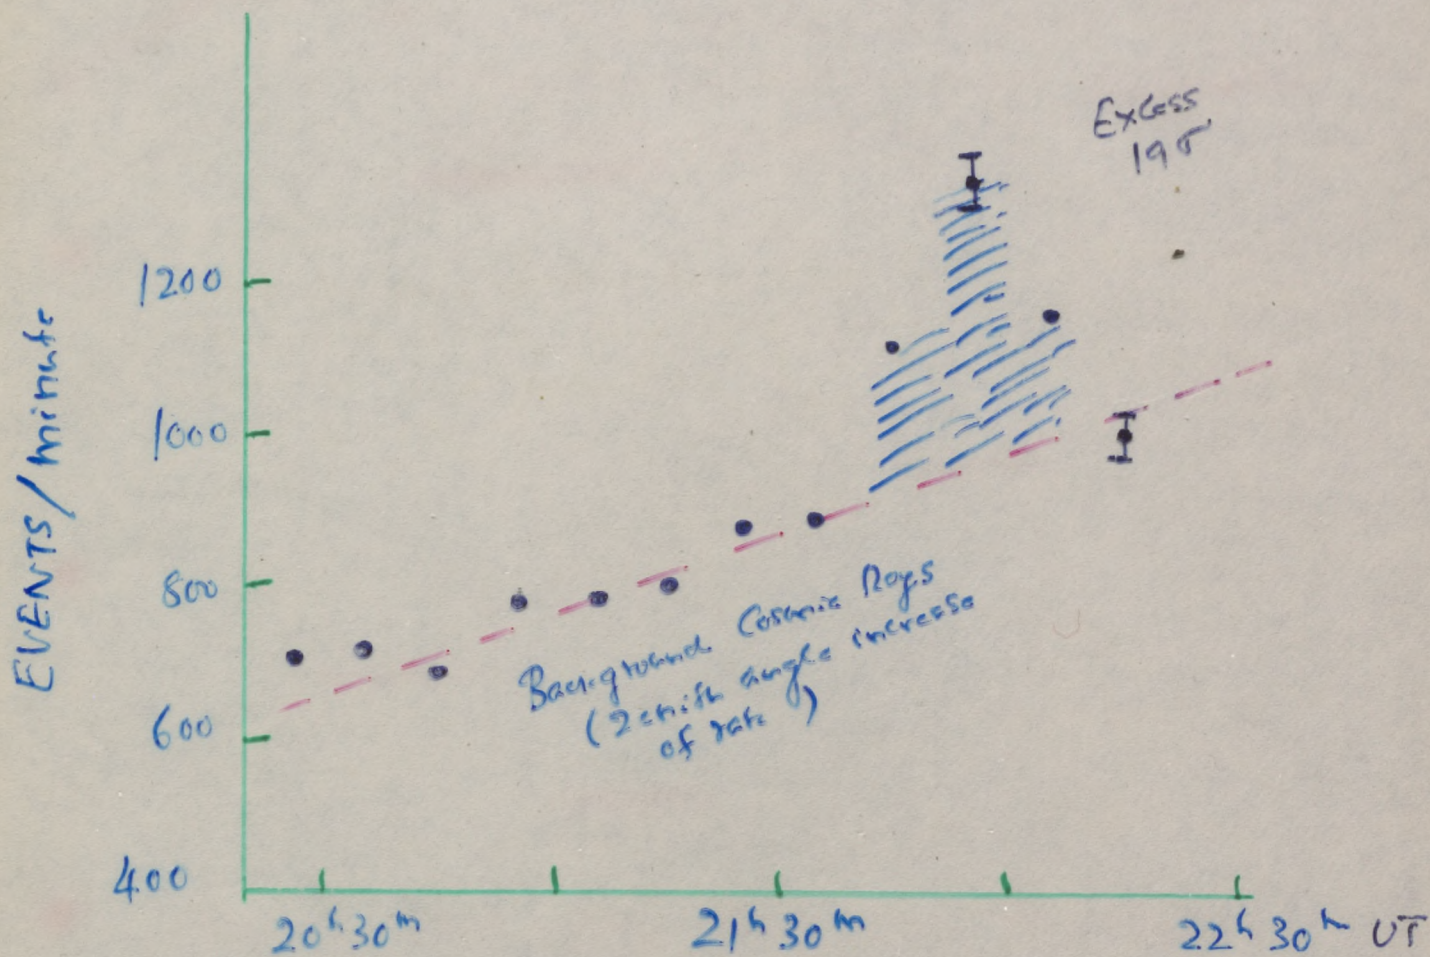 Excess
19σ
EVENTS/minute
1200
1000
800
600
400
Background Cosmic Rays
(Zenith angle increase
of rate)
20h 30m
21h 30m
22h 30m UT